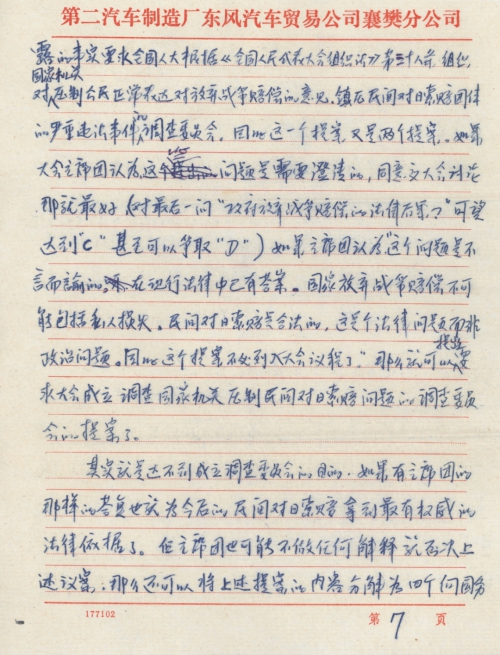 第二汽车制造厂东风汽车贸易公司襄樊分公司
露的事实要求全国人大根据《全国人民代表大会组织法》第三十八条，组织
国家机关
对压制公民正常表达对放弃战争赔偿的意见，镇压民间对日索赔团体
的严重违法事件的调查委员会，因此这一个提案又是两个提案。如果
大会主席团认为这个问题是需要澄清的，同意交大会讨论
那就最好（对最后一问“政府放弃战争赔偿的法律后果？”可望
达到“C”甚至可以争取“D”）如果主席团认为“这个问题是不
言而喻的，在现行法律中已有答案。国家放弃战争赔偿不可
能包括私人损失。民间对日索赔是合法的，这是个法律问题而非
政治问题。因此这个提案不必列入大会议程了。”那么就可以要
提出
求大会成立调查国家机关压制民间对日索赔问题的调查委员
会的提案了。
其实就是达不到成立调查委员会的目的，如果有主席团的
那样的答复也就为今后的民间对日索赔拿到最有权威的
法律依据了。但主席团也可能不做任何解释就否决上
述议案，那么还可以将上述提案的内容分解为四个向国务
177102
第 7 页